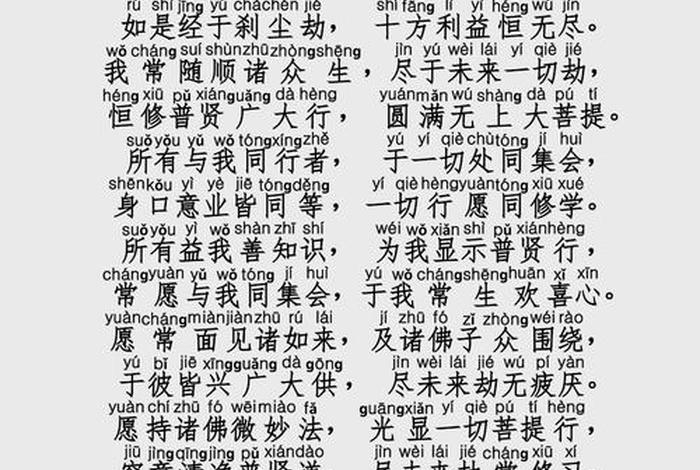 rú shí jīng yú chàchén jié shí fāng lì yí héng wú jìn
如是经于刹尘劫， 十方利益恒无尽。
wǒ cháng suí shùnzhūzhòngshēng jìn yú wèi lái yí qiè jié
我常随顺诸众生， 尽于未来一切劫，
héng xiū pǔ xiánguǎng dà hèng yuánmǎn wú shàng dà pú tí
恒修普贤广大行， 圆满无上大菩提。
suǒyǒu yǔ wǒ tóngxíngzhě yú yí qiè chùtóng jí huì
所有与我同行者， 于一切处同集会，
shēnkǒu yì yè jiē tóngděng yí qiè hèngyuàntóng xiū xué
身口意业皆同等， 一切行愿同修学。
suǒyǒu yì wǒ shàn zhī shí wéi wǒ xiǎn shì pǔ xiánhèng
所有益我善知识， 为我显示普贤行，
chángyuàn yǔ wǒ tóng jí huì yú wǒ chángshēnghuān xǐ xīn
常愿与我同集会， 于我常生欢喜心。
yuànchángmiànjiànzhū rú lái jí zhū fó zǐ zhòngwéi rào
愿常面见诸如来， 及诸佛子众围绕，
yú bǐ jiē xīngguǎng dà gōng jìn wèi lái jié wú pí yàn
于彼皆兴广大供， 尽未来劫无疲厌。
yuàn chí zhū fó wēimiào fǎ guāngxiǎn yí qiè pú tí hèng
愿持诸佛微妙法， 光显一切菩提行，
jiū jìngqīngjìng pǔ xiándào jìn wèi lái jié cháng xiū xí
究竟清净普贤道， 尽未来劫常修习。